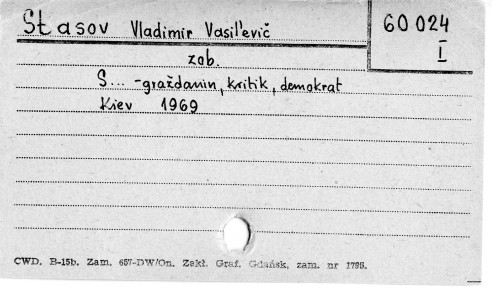 Stasov Vladimir Vasil'evič
60 024
I
zob.
S... -graždanin, kritik, demokrat
Kiev 1969
CWD. B-15b. Zam. 657-DW/On. Zakł. Graf. Gdańsk, zam. nr 1795.